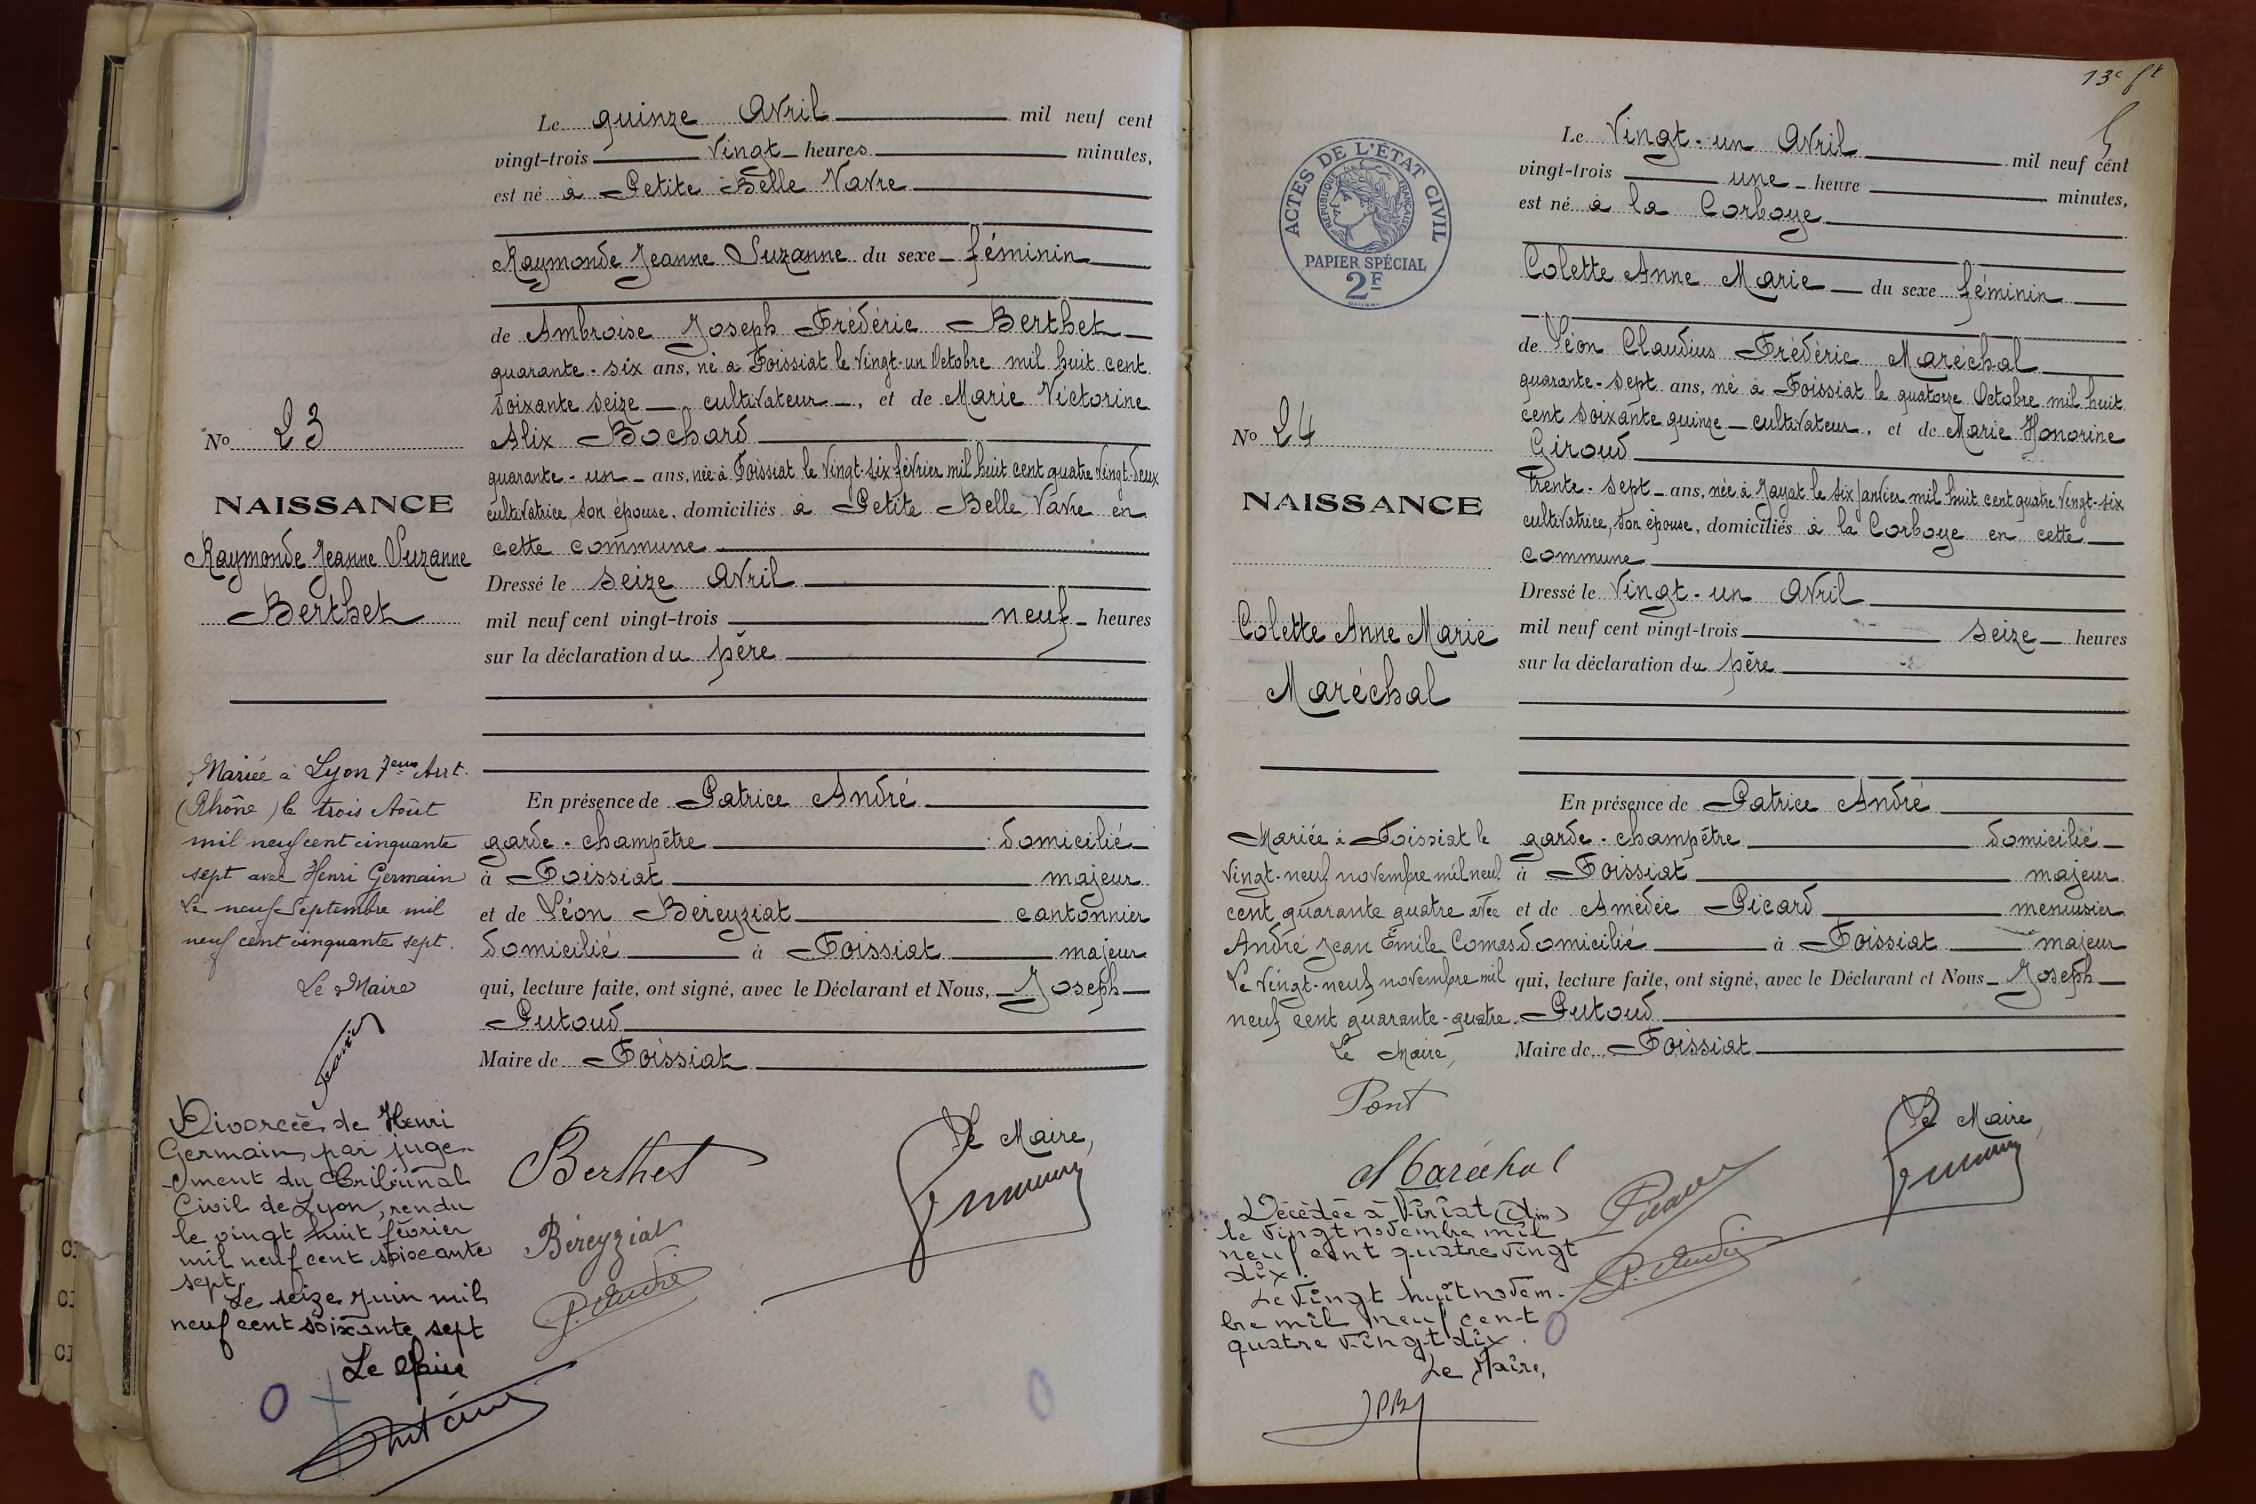 Le quinze Avril mil neuf cent
vingt-trois Vingt heures minutes,
est né à Petite Belle Vavre
Raymonde Jeanne Suzanne du sexe féminin
de Ambroise Joseph Frédéric Berthet
quarante-six ans, né à Foissiat le vingt-un Octobre mil huit cent
soixante seize cultivateur, et de Marie Victorine
Alix Bochard
quarante-un ans, née à Foissiat le vingt-six février mil huit cent quatre vingt-deux
cultivatrice, son épouse, domiciliés à Petite Belle Vavre en
cette commune
Dressé le seize Avril
mil neuf cent vingt-trois neuf heures
sur la déclaration du père
En présence de Patrice André
garde-champêtre domicilié
à Foissiat majeur
et de Léon Béreyziat cantonnier
domicilié à Foissiat majeur
qui, lecture faite, ont signé, avec le Déclarant et Nous, Joseph
Putoud
Maire de Foissiat
Le Maire,
Berthet
Béreyziat
P. André
No 23
NAISSANCE
Raymonde Jeanne Suzanne
Berthet
Mariée à Lyon 7eme Arrt.
(Rhône) le trois Août
mil neuf cent cinquante
sept avec Henri Germain
Le neuf Septembre mil
neuf cent cinquante sept.
Le Maire
Divorcée de Henri
Germain, par juge-
-ment du Tribunal
Civil de Lyon, rendu
le vingt huit février
mil neuf cent soixante
sept.
Le seize juin mil
neuf cent soixante sept
Le Maire
13e ft
Le Vingt-un Avril mil neuf cent
vingt-trois une heure minutes,
est né à la Corboye
Colette Anne Marie du sexe féminin
de Léon Claudius Frédéric Maréchal
quarante-sept ans, né à Foissiat le quatorze Octobre mil huit
cent soixante quinze cultivateur, et de Marie Honorine
Giroud
trente-sept ans, née à Jayat le six Janvier mil huit cent quatre vingt-six
cultivatrice, son épouse, domiciliés à la Corboye en cette
commune
Dressé le Vingt-un Avril
mil neuf cent vingt-trois seize heures
sur la déclaration du père
En présence de Patrice André
garde-champêtre domicilié
à Foissiat majeur
et de Amédée Picard menuisier
domicilié à Foissiat majeur
qui, lecture faite, ont signé, avec le Déclarant et Nous Joseph
Putoud
Maire de Foissiat
Le Maire,
Maréchal
Picard
P. André
ACTES DE L'ÉTAT CIVIL
RÉPUBLIQUE FRANÇAISE
PAPIER SPÉCIAL
2F
No 24
NAISSANCE
Colette Anne Marie
Maréchal
Mariée à Foissiat le
vingt-neuf novembre mil neuf
cent quarante quatre avec
André Jean Émile Comas
Le vingt-neuf novembre mil
neuf cent quarante-quatre.
Le Maire,
Pont
Décédée à Viriat (Ain)
le vingt novembre mil
neuf cent quatre vingt
dix.
Le vingt huit novem-
bre mil neuf cent
quatre vingt dix.
Le Maire,